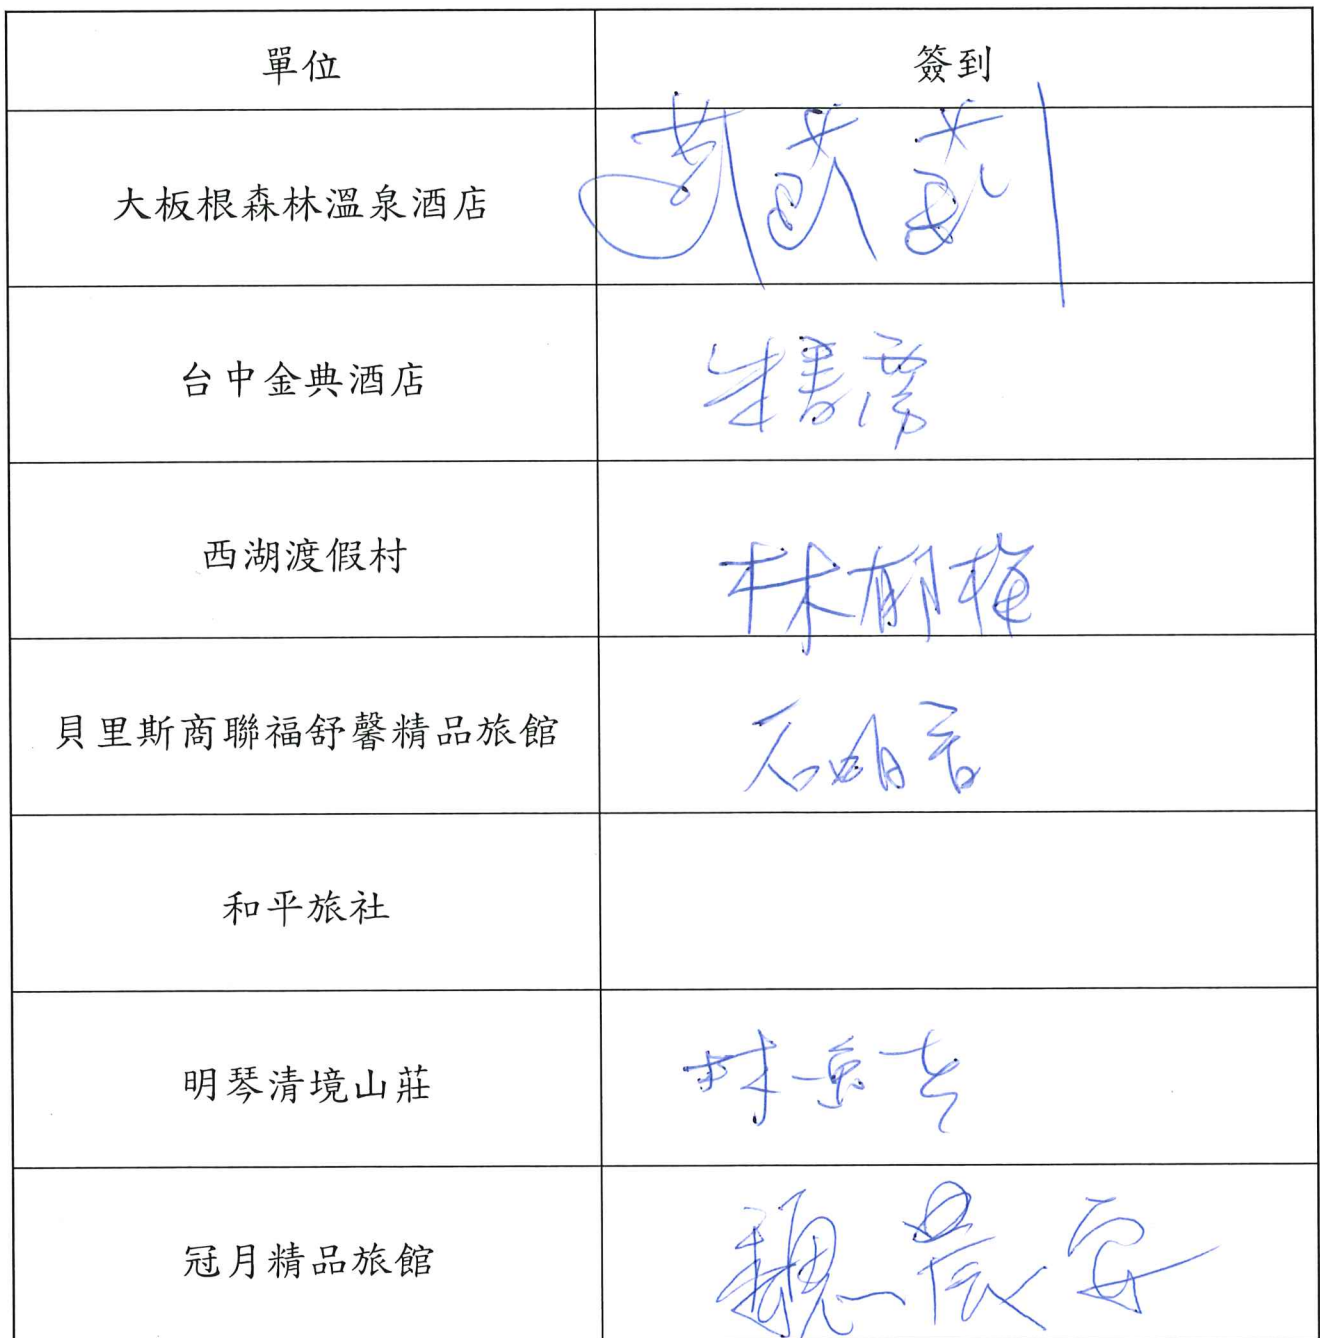 單位
簽到
大板根森林溫泉酒店
台中金典酒店
朱書霈
西湖渡假村
林郁梅
貝里斯商聯福舒馨精品旅館
石明
和平旅社
明琴清境山莊
林
冠月精品旅館
魏農安